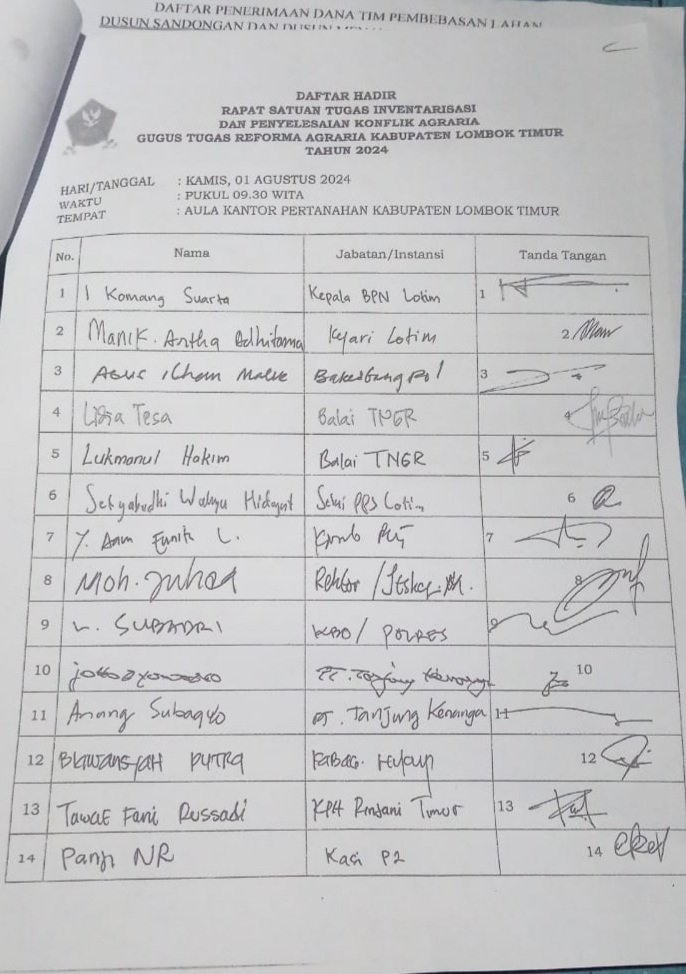 DAFTAR PENERIMAAN DANA TIM PEMBEBASAN LAHAN
DUSUN SANDONGAN DAN DUSUN
DAFTAR HADIR
RAPAT SATUAN TUGAS INVENTARISASI
DAN PENYELESAIAN KONFLIK AGRARIA
GUGUS TUGAS REFORMA AGRARIA KABUPATEN LOMBOK TIMUR
TAHUN 2024
HARI/TANGGAL : KAMIS, 01 AGUSTUS 2024
WAKTU : PUKUL 09.30 WITA
TEMPAT : AULA KANTOR PERTANAHAN KABUPATEN LOMBOK TIMUR
No. Nama Jabatan/Instansi Tanda Tangan
1 I Komang Suarta Kepala BPN Lotim 1
2 Manik. Antha Adhitama Kejari Lotim 2
3 Agus Ilham Bakesbangpol 3
4 Lidia Tesa Balai TNGR 4
5 Lukmanul Hakim Balai TNGR 5
6 Setyabudhi Wahyu Hidayat Lotim 6
7 Y. L. 7
8 Moh. Juhad Rektor / 8
9 L. SUBADRI KBO / POLRES 9
10 PT. Tanjung Kenanga 10
11 Anang Subagyo PT. Tanjung Kenanga 11
12 PUTRA Kabag. Hukum 12
13 Fani Russadi KPH Rinjani Timur 13
14 Panji NR Kasi P2 14